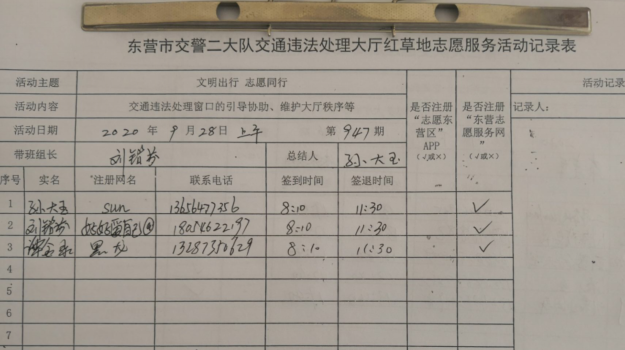 东营市交警二大队交通违法处理大厅红草地志愿服务活动记录表
活动主题 文明出行 志愿同行 活动记录
活动内容 交通违法处理窗口的引导协助、维护大厅秩序等 是否注册“志愿东营区”APP(√或×) 是否注册“东营志愿服务网”(√或×) 记录人：
活动日期 2020 年 9 月 28 日 上午 第 947 期
带班组长 总结人 孙大玉
序号 实名 注册网名 联系电话 签到时间 签退时间
1 孙大玉 sun 13656477356 8:10 11:30 √
2 8:10 11:30 √
3 黑龙 13687350629 8:10 11:30 √
4
5
6
7